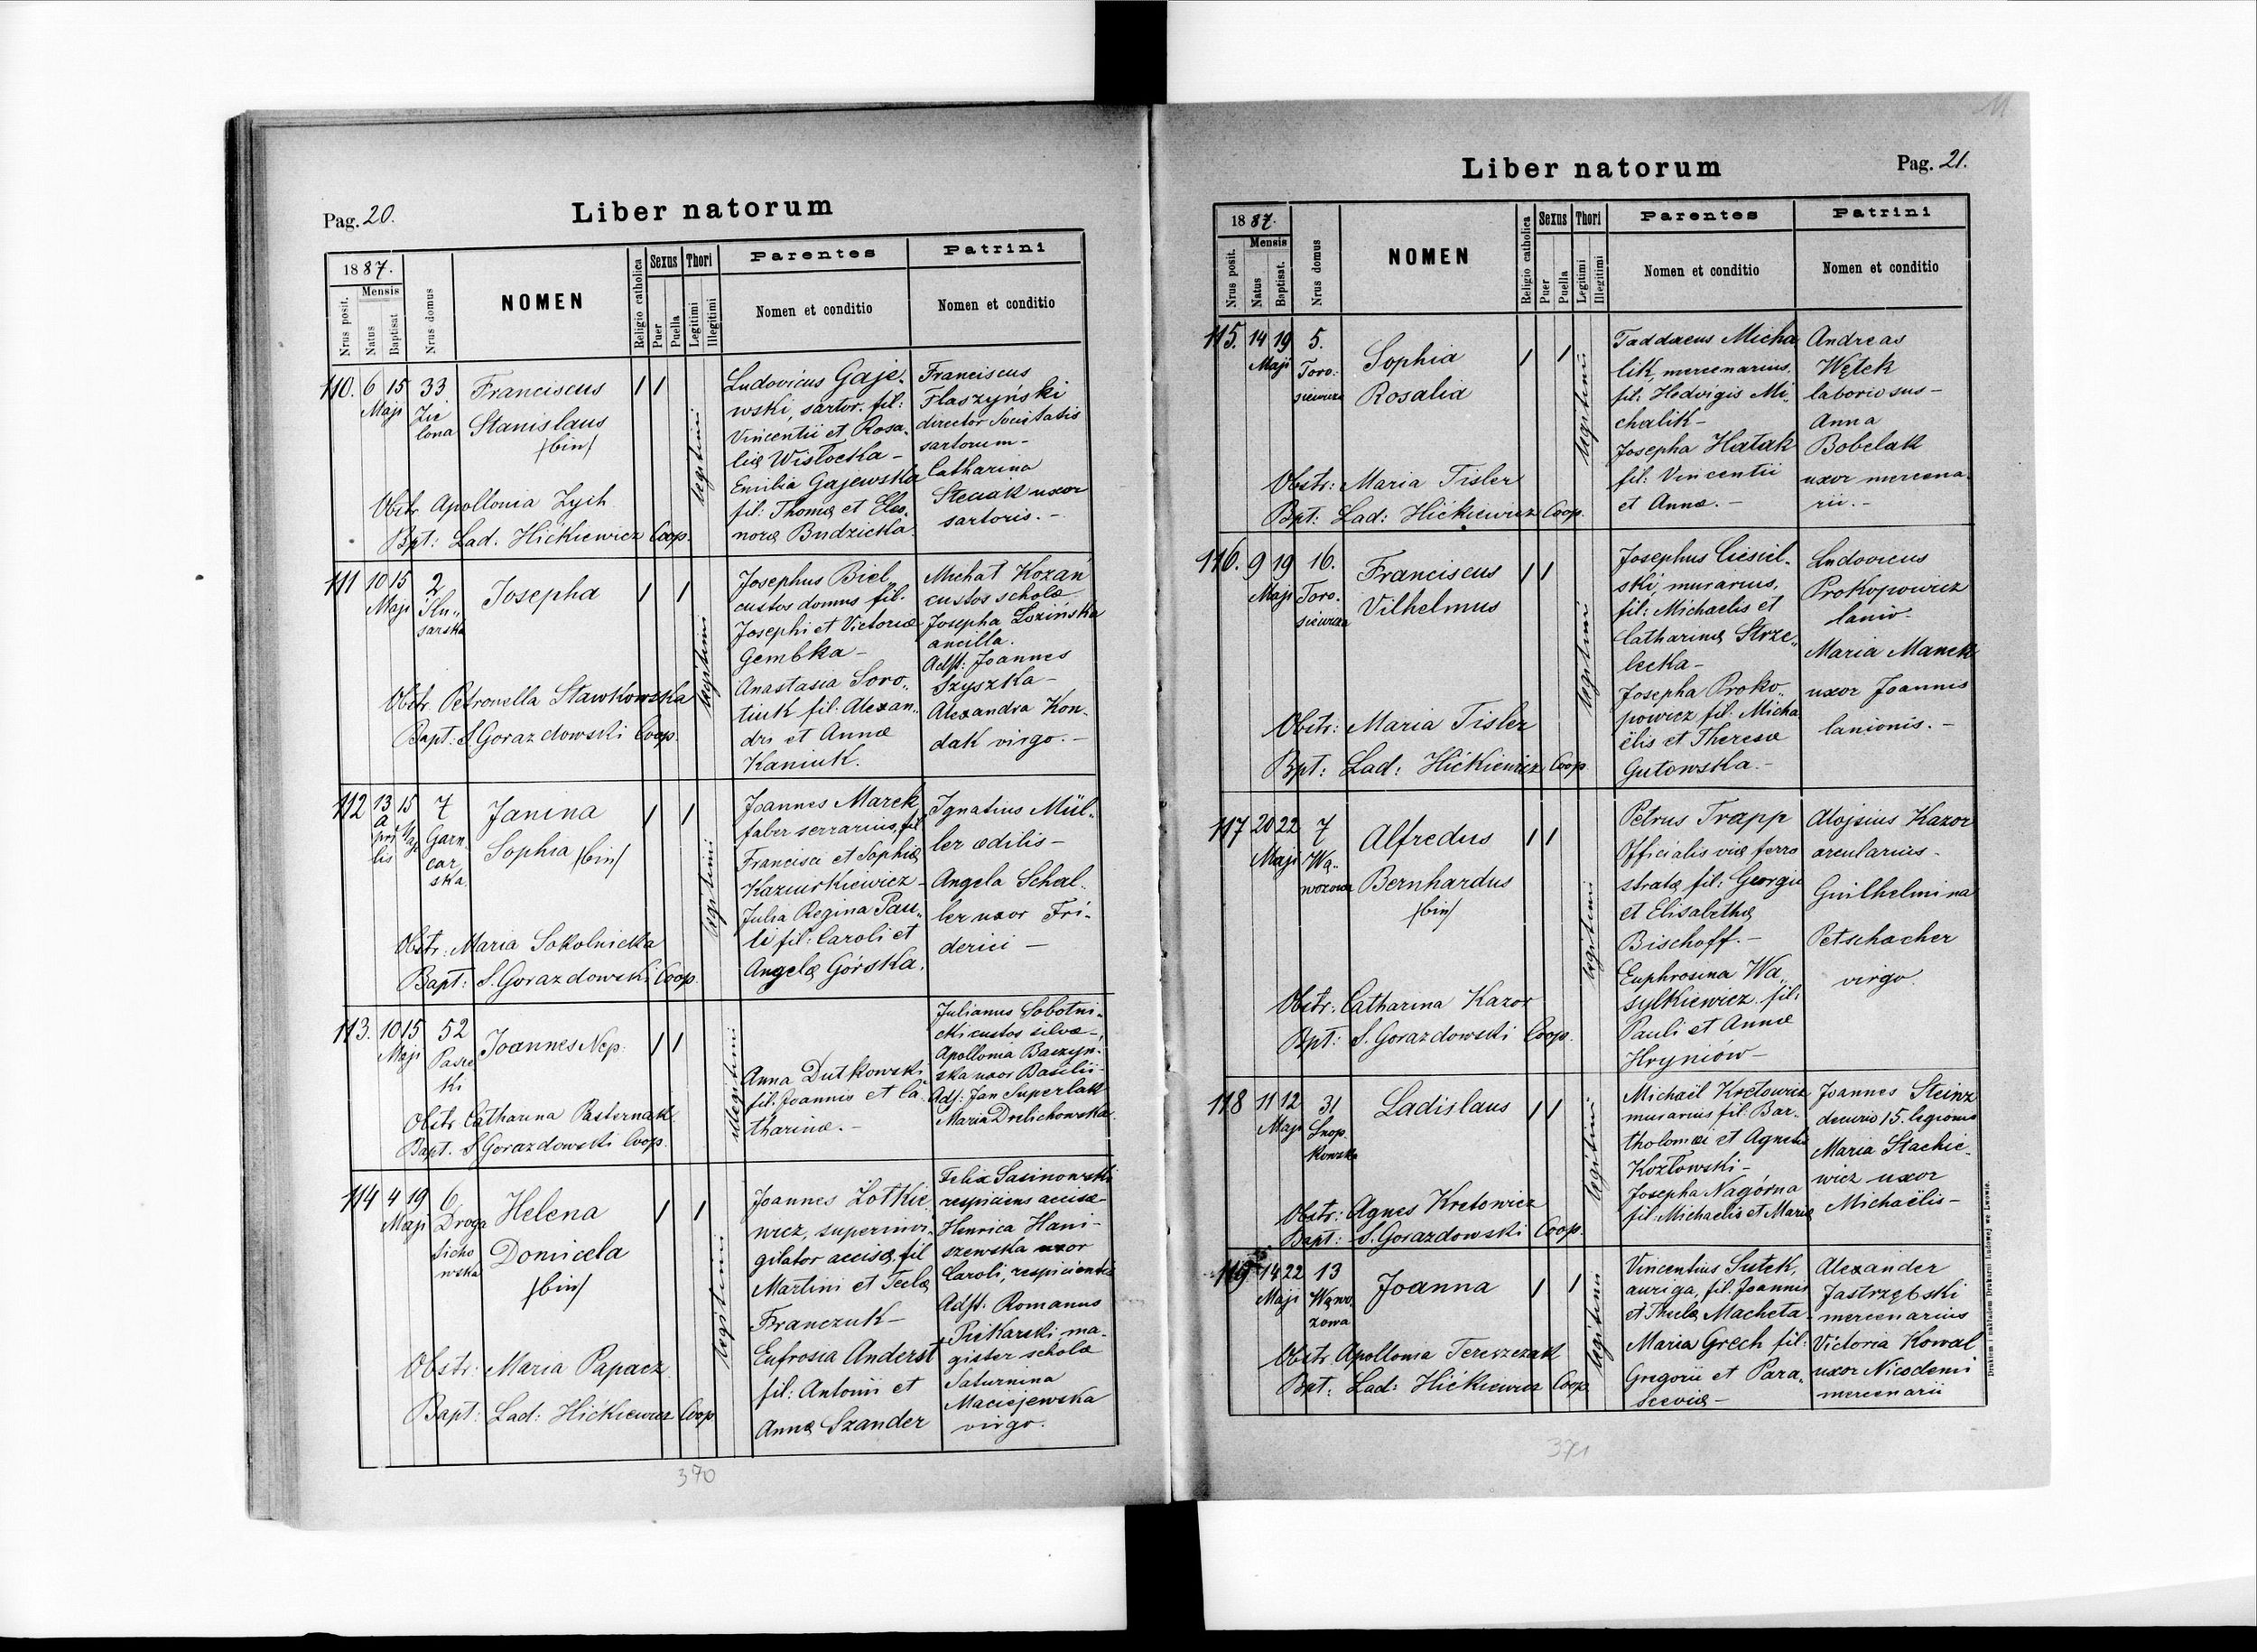 Pag. 20.
Liber natorum
1887.
Mensis
Nrus posit.
Natus
Baptisat
Nrus domus
NOMEN
Religio catholica
Sexus
Puer
Puella
Thori
Legitimi
Illegitimi
Parentes
Nomen et conditio
Patrini
Nomen et conditio
110. 6 15 33.
Maji
Zie
lona
Franciscus
Stanislaus
/bin/
Obstr. Apollonia Zych
Bpt: Lad. Hićkiewicz Coop.
legitimi
Ludovicus Gaje-
wski, sartor. fil:
Vincentii et Rosa-
liæ Wisłocka -
Emilia Gajewska
fil: Thomæ et Eleo-
noræ Budzicka.
Franciscus
Flaszyński
director Societatis
sartorum -
Catharina
Steciak uxor
sartoris. -
111 10 15 2
Maji
Ślu-
sarska
Josepha
Obstr. Petronella Stawkowska
Bapt: S Gorazdowski Coop.
legitimi
Josephus Biel
custos domus fil.
Josephi et Victoriæ
Gembka -
Anastasia Soro-
tiuk fil: Alexan-
dri et Annæ
Kaniuk.
Michał Kozań
custos scholæ
Josepha Łozinska
ancilla.
Adst: Joannes
Szyszka -
Alexandra Kon-
dak virgo. -
112 13 15 7
Aprilis
Garn
car
ska
Janina
Sophia /bin/
Obstr: Maria Sokolnicka
Bapt: S. Gorazdowski Coop.
legitimi
Joannes Marek
faber serrarius, fil
Francisci et Sophiæ
Kaziurkiewicz -
Julia Regina Pau-
li fil: Caroli et
Angelæ Górska.
Ignatius Mül-
ler ædilis -
Angela Schal-
ler uxor Fri-
derici -
113. 10 15 52
Maji
Pasie
ki
Joannes Nep:
Obstr Catharina Pasternak
Bapt. S Gorazdowski Coop.
illegitimi
Anna Dutkowski
fil. Joannis et Ca-
tharinæ. -
Julianus Sobotni-
cki custos silvæ -
Apollonia Baczyn-
ska uxor Basilii
Ads: Jan Superlak
Maria Drelichowska
114 4 19 6.
Maji
Droga
Sicho
wska
Helena
Domicela
/bin/
Obstr: Maria Papacz
Bapt: Lad: Hićkiewicz Coop
legitimi
Joannes Żotkie
wicz, supernvi-
gilator accisæ, fil
Martini et Teclæ
Franczuk -
Eufrosia Anderst
fil: Antonii et
Annæ Szander
Felix Sasinowski
respiciens accisæ -
Henrica Hani-
szewska uxor
Caroli, respicientis
Adst. Romanus
Piekarski, ma-
gister scholæ
Saturnina
Maciejewska
virgo.
370
Liber natorum
Pag. 21.
1887.
Mensis
Nrus posit.
Natus
Baptisat.
Nrus domus
NOMEN
Religio catholica
Sexus
Puer
Puella
Thori
Legitimi
Illegitimi
Parentes
Nomen et conditio
Patrini
Nomen et conditio
115. 14 19 5.
Maji
Toro-
siewicza
Sophia
Rosalia
Obstr: Maria Tisler
Bpt: Lad: Hićkiewicz Coop.
legitimi
Taddaeus Micha
lik, mercenarius.
fil: Hedvigis Mi-
chalik -
Josepha Hatak
fil: Vincentii
et Annæ. -
Andreas
Wętek
laboriosus -
Anna
Bobelak
uxor mercena-
rii. -
116. 9 19 16.
Maji
Toro-
siewicza
Franciscus
Vilhelmus
Obstr: Maria Tisler
Bpt: Lad: Hićkiewicz Coop.
legitimi
Josephus Ciesiel-
ski, murarius,
fil: Michaelis et
Catharinæ Strze-
lecka -
Josepha Proko-
powicz fil: Micha
ëlis et Theresæ
Gutowska. -
Ludovicus
Prokopowicz
lanio -
Maria Manek
uxor Joannis
lanionis. -
117 20 22 7
Maji
Wą-
wozowa
Alfredus
Bernhardus
/bin/
Obstr. Catharina Kazor
Bpt: S. Gorazdowski Coop.
legitimi
Petrus Trapp
Officialis viæ ferro
stratæ fil: Georgii
et Elisabethæ
Bischoff. -
Euphrosina Wa-
sylkiewicz fil:
Pauli et Annæ
Hryniów -
Alojsius Kazor
arcularius -
Guilhelmina
Petschacher
virgo.
118 11 12 31
Maji
Snop-
kowska
Ladislaus
Obstr: Agnes Kretowicz
Bapt: S. Gorazdowski Coop.
legitimi
Michaël Kretowicz
murarius fil: Bar-
tholomæi et Agnetis
Kozłowski -
Josepha Nagórna
fil: Michaelis et Mariæ
Joannes Steinz
decurio 15. legionis
Maria Stachie-
wicz uxor
Michaëlis -
119 14 22 13
Maji
Wąwo
zowa
Joanna
Obstr. Apollonia Tereszczak
Bpt: Lad: Hićkiewicz Coop
legitimi
Vincentius Sutek,
auriga, fil. Joannis
et Theclæ Macheta -
Maria Grech fil:
Gregorii et Para-
sceviæ -
Alexander
Jastrzębski
mercenarius
Victoria Kowal
uxor Nicodemi
mercenarii
Drukiem i nakładem Drukarni Ludowej we Lwowie.
371